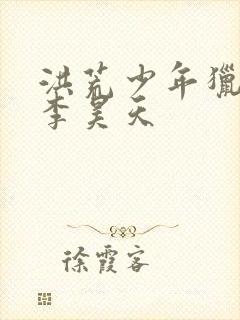 洪荒少年獵
李昊天
徐霞客